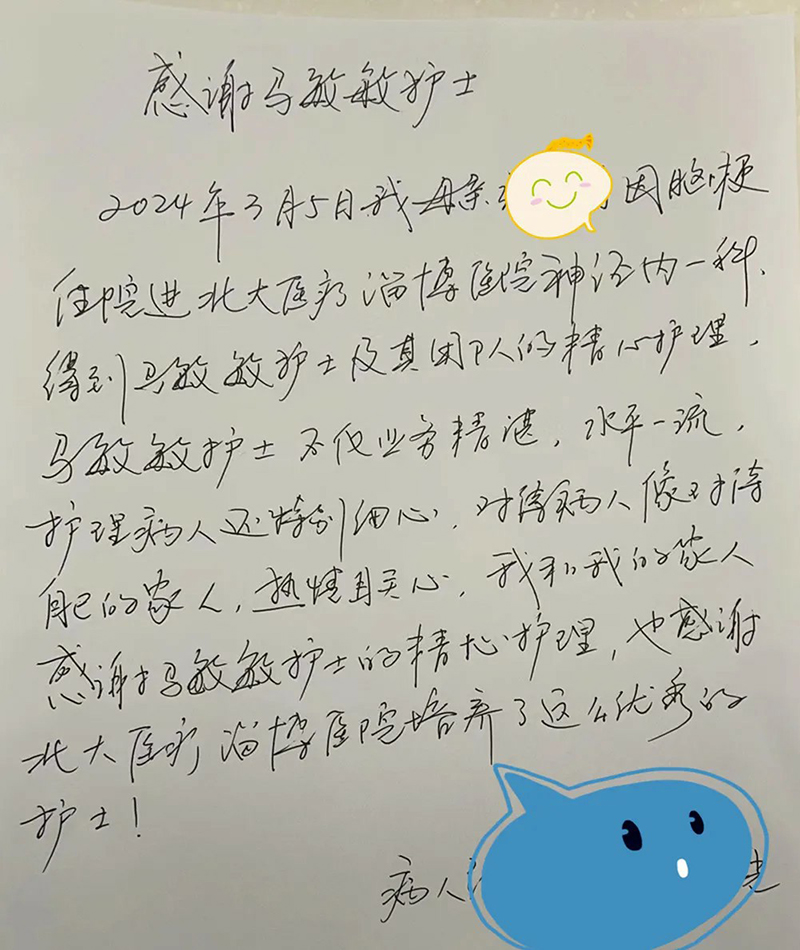 感谢马敏敏护士
2024年3月5日我母亲 因脑梗
住院进北大医疗淄博医院神经内一科、
得到马敏敏护士及其团队的精心护理，
马敏敏护士不仅业务精湛，水平一流，
护理病人还特别细心，对待病人像对待
自己的家人，热情且关心，我和我的家人
感谢马敏敏护士的精心护理，也感谢
北大医疗淄博医院培养了这么优秀的
护士！
病人